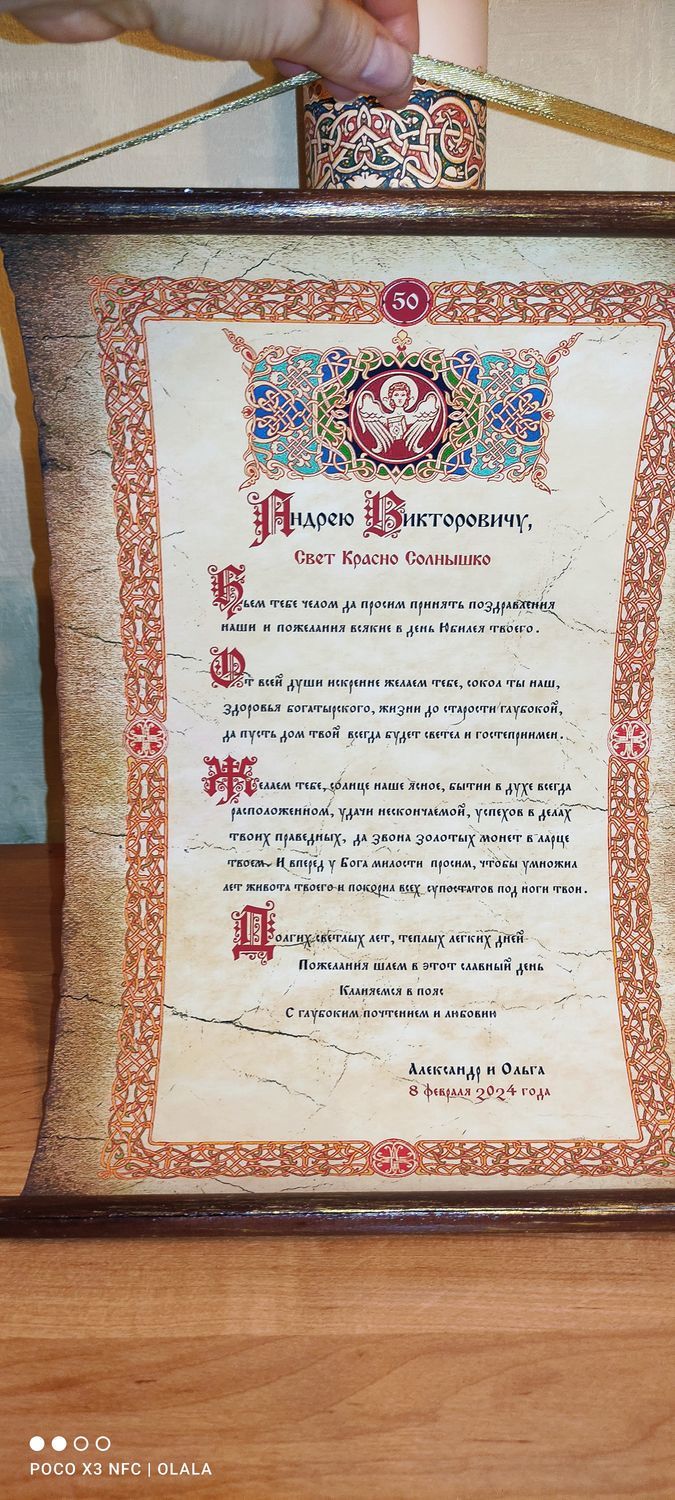 50
Андрею Викторовичу,
Свет Красно Солнышко
Бьем тебе челом да просим принять поздравления
наши и пожелания всякие в день Юбилея твоего.
От всей души искренне желаем тебе, сокол ты наш,
здоровья богатырского, жизни до старости глубокой,
да пусть дом твой всегда будет светел и гостеприимен.
Желаем тебе, солнце наше ясное, бытии в духе всегда
расположенном, удачи нескончаемой, успехов в делах
твоих праведных, да звона золотых монет в ларце
твоем. И вперед у Бога милости просим, чтобы умножил
лет живота твоего и покорил всех супостатов под ноги твои.
Долгих светлых лет, теплых легких дней
Пожелания шлем в этот славный день
Кланяемся в пояс
С глубоким почтением и любовию
Александр и Ольга
8 февраля 2024 года
POCO X3 NFC | OLALA